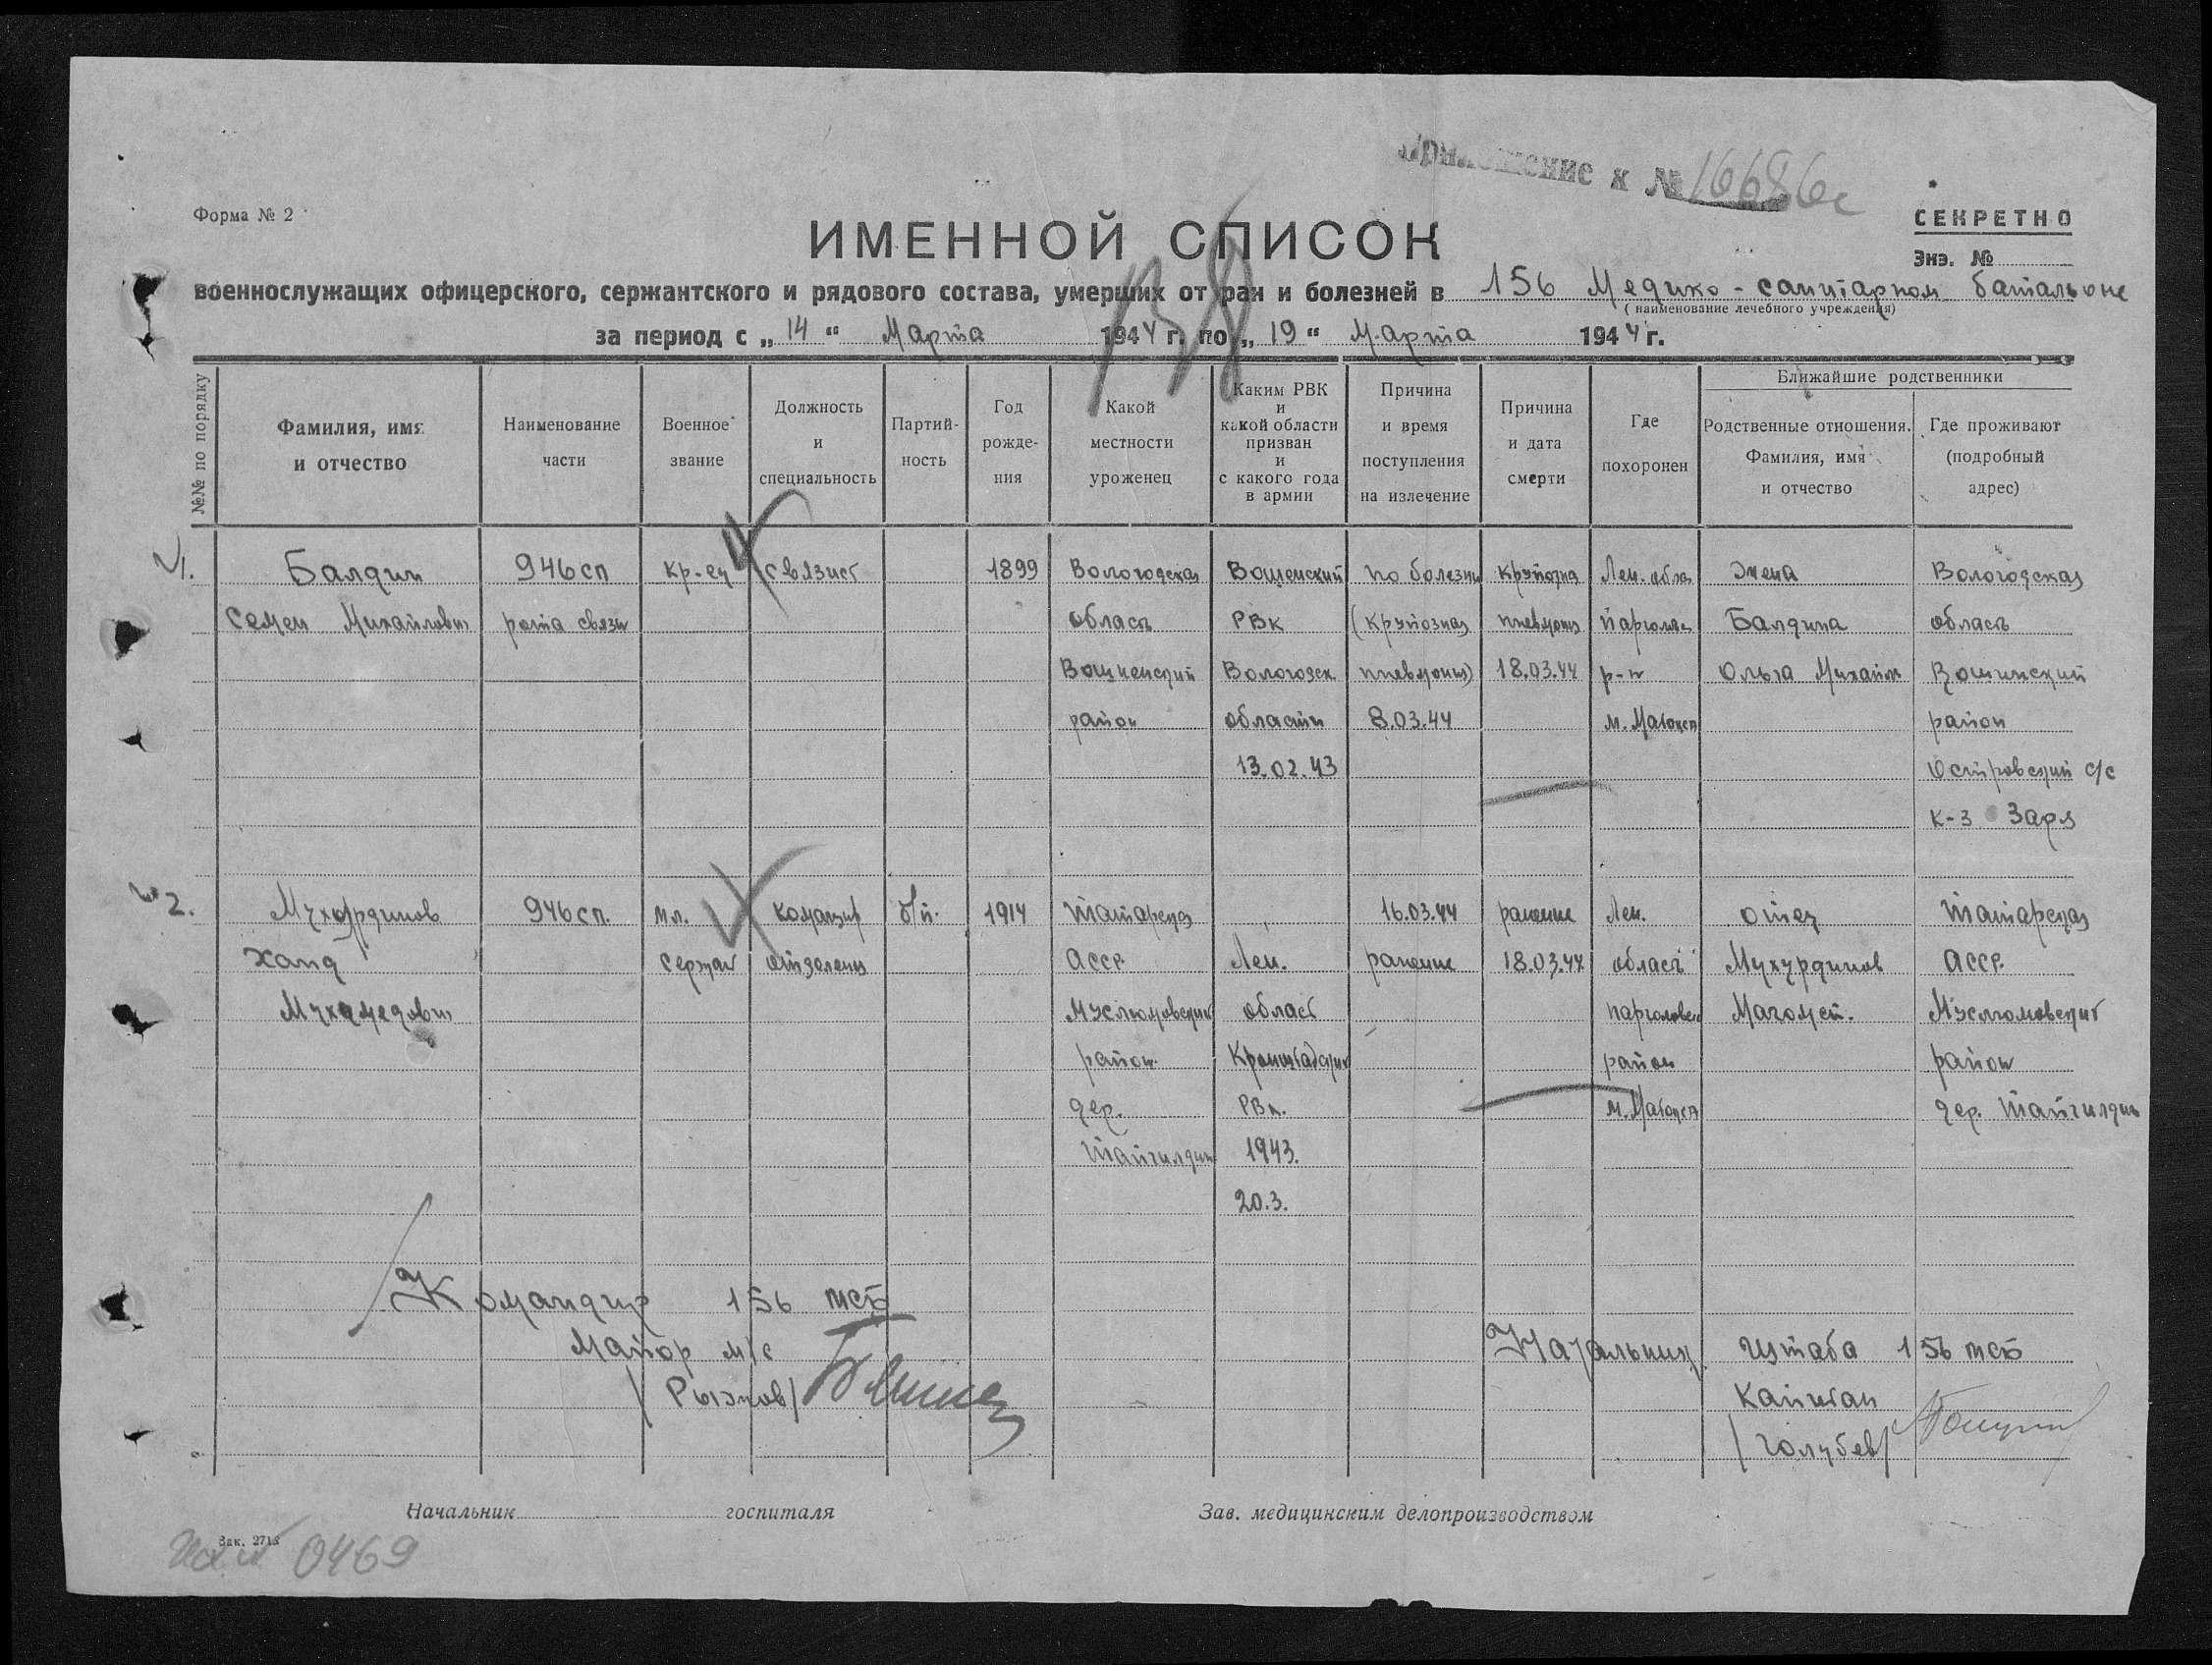 Приложение к № 16686с
Форма № 2
СЕКРЕТНО
ИМЕННОЙ СПИСОК
Экз. №
военнослужащих офицерского, сержантского и рядового состава, умерших от ран и болезней в 156 Медико-санитарном батальоне
(наименование лечебного учреждения)
за период с „14“ Марта 1944 г. по „19“ Марта 1944 г.
138
№№ по порядку
Фамилия, имя
и отчество
Наименование
части
Военное
звание
Должность
и
специальность
Партий-
ность
Год
рожде-
ния
Какой
местности
уроженец
Каким РВК
и
какой области
призван
и
с какого года
в армии
Причина
и время
поступления
на излечение
Причина
и дата
смерти
Где
похоронен
Ближайшие родственники
Родственные отношения.
Фамилия, имя
и отчество
Где проживают
(подробный
адрес)
1. Балдин 946 сп кр-ец связист 1899 Вологодская Вошенский по болезни крупозна Лен. обла Жена Вологодская
Семен Михайлович рота связи област РВК (крупозная пневмония Парголов Балдина област
Вашкенский Вологодск. пневмония) 18.03.44 р-н Ольга Михайл Вошинский
район области 8.03.44 м. район
13.02.43 Островский с/с
к-з Заря
2. 946 сп. мл. командир б/п. 1914 Татарская 16.03.44 ранение Лен. отец Татарская
Хапд сержант отделения АССР Лен. ранение 18.03.44 област Мухурдинов АССР.
Мухамедович Муслюмовский област парголовск Магомет. Муслюмовский
район Кронштадский район район
дер. РВк. м. дер. Тайгилдин
Тайгилдин 1943.
20.3.
Командир 156 мсб
Майор м/с
/Рыжков/
Начальник Штаба 156 мсб
Капитан
/Голубев/
Начальник госпиталя
Зав. медицинским делопроизводством
Зак. 2713
0469